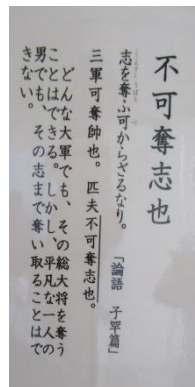 不可奪志也
志を奪ふ可からざるなり。
「論語 子罕篇」
三軍可奪帥也。匹夫不可奪志也。
どんな大軍でも、その総大将を奪う
ことはできる。しかし、平凡な一人の
男でも、その志まで奪い取ることはで
きない。